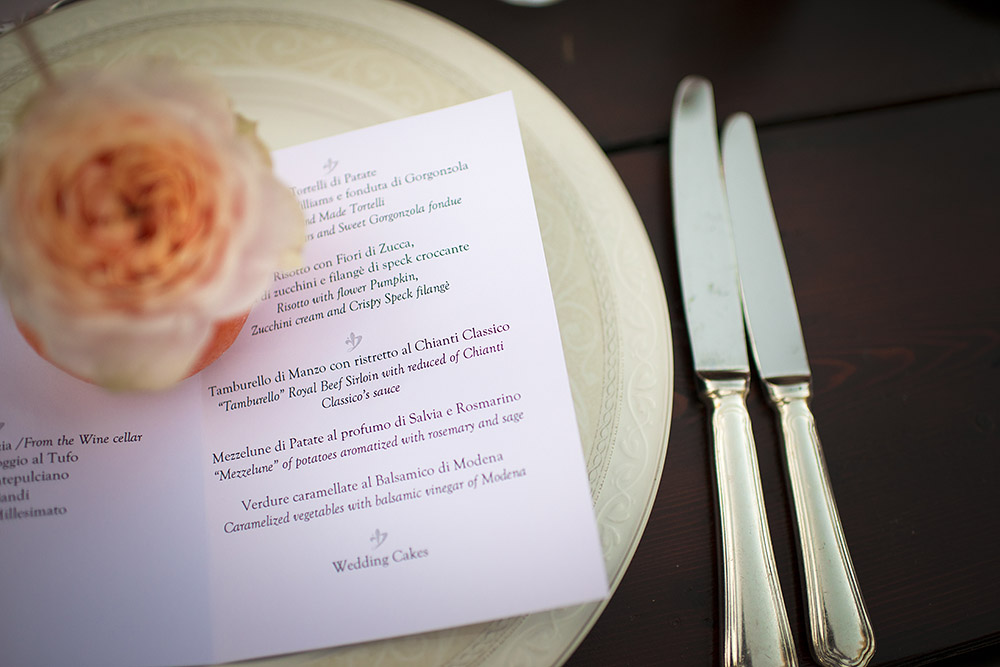 Tortelli di Patate
e fonduta di Gorgonzola
Made Tortelli
and Sweet Gorgonzola fondue
Risotto con Fiori di Zucca,
di zucchini e filangè di speck croccante
Risotto with flower Pumpkin,
Zucchini cream and Crispy Speck filangè
Tamburello di Manzo con ristretto al Chianti Classico
“Tamburello” Royal Beef Sirloin with reduced of Chianti
Classico's sauce
Mezzelune di Patate al profumo di Salvia e Rosmarino
“Mezzelune” of potatoes aromatized with rosemary and sage
Verdure caramellate al Balsamico di Modena
Caramelized vegetables with balsamic vinegar of Modena
Wedding Cakes
/From the Wine cellar
al Tufo
Millesimato